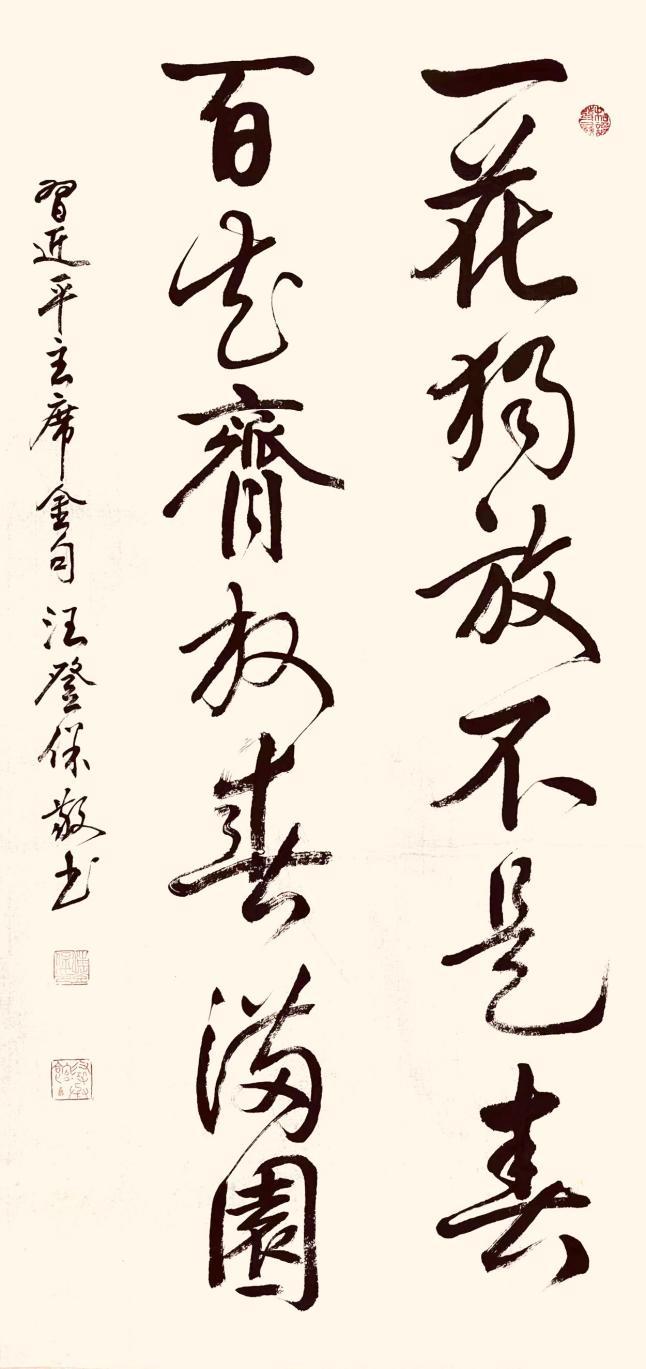 一花獨放不是春
百花齊放春滿園
習近平主席金句 汪登保敬书